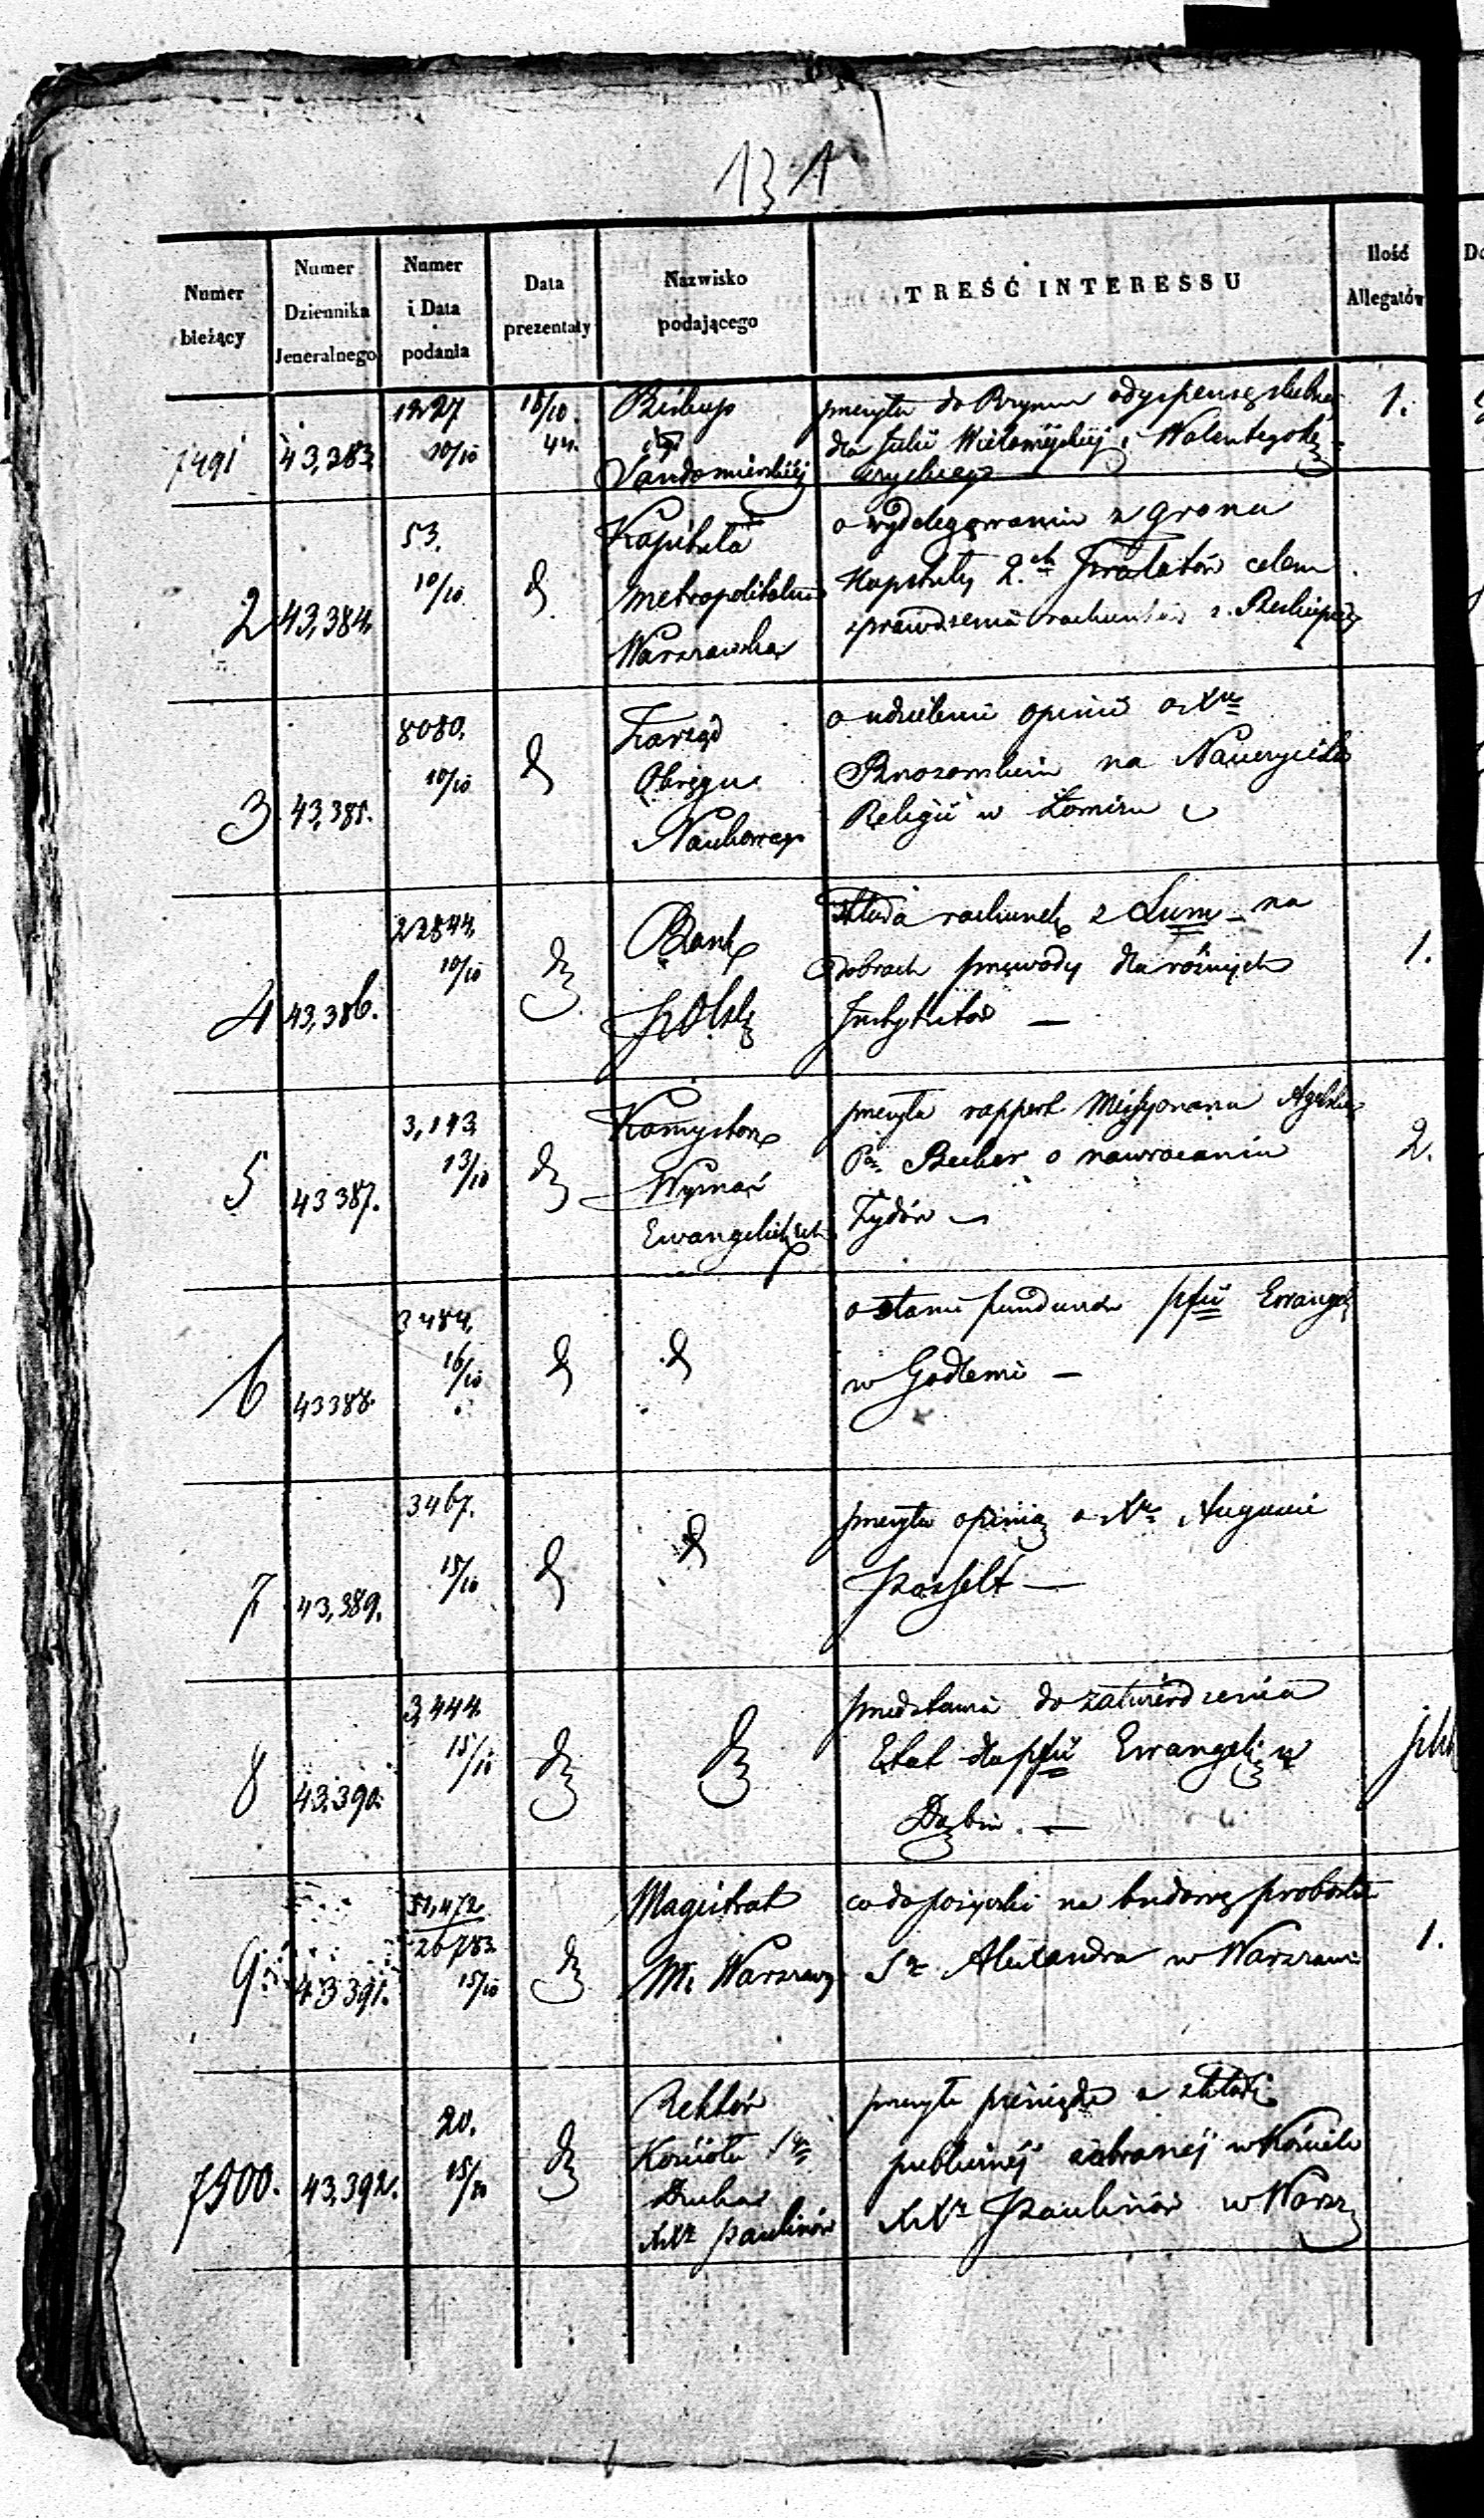 131
Numer bieżący
Numer Dziennika Jeneralnego
Numer i Data podania
Data prezentaty
Nazwisko podającego
TREŚĆ INTERESSU
Ilość Allegatów
7491
43,383
1227
10/10
18/10
44.
Biskup
Sandomierskiéj
przesyła do Rzymu
dla Julii i Walentego
1.
2
43,384.
53.
10/10
d
Kapituła
Metropolitalna
Warszawska
o wydelegowanie z grona
Kapituły 2.ch Prałatów celem
sprawdzenia rachunków z
3
43,385.
8080.
10/10
d
Zarząd
Okręgu
Naukowego
o udzielenie opinii o Xu
na Nauczyciela
Religii w Łomży
4
43,386.
22844.
10/10
d
Bank
Polski
składa rachunek z Sum na
dobrach dla różnych
Instytutów —
1.
5
43387.
3,143
13/10
d
Konsystorz
Wyznań
Ewangelickich
przesyła rapport Missyonarza
Becker o nawracaniu
Żydów —
2.
6
43388.
3484.
16/10
d
d
o stanie funduszów pfii Ewangel
w Godlewie —
7
43,389.
3467.
15/10
d
d
przesyła opinią o Xu Auguście
Posselt —
8
43,390.
3,444.
15/10
d
d
przedstawia do zatwierdzenia
Etat dla pfii Ewangeli w
Dąbiu. —
9
43391.
51,472
26783
15/10
d
Magistrat
M. Warszawy
co do pożyczki na budowę probostwa
Sgo Alexandra w Warszawie
1.
7500.
43,392.
20.
15/10
d
Rektór
Kościoła Sgo
Ducha
XXr Paulinów
przesyła pieniądze z składki
publicznéj zebranéj w Kościele
XXr Paulinów w Warsz